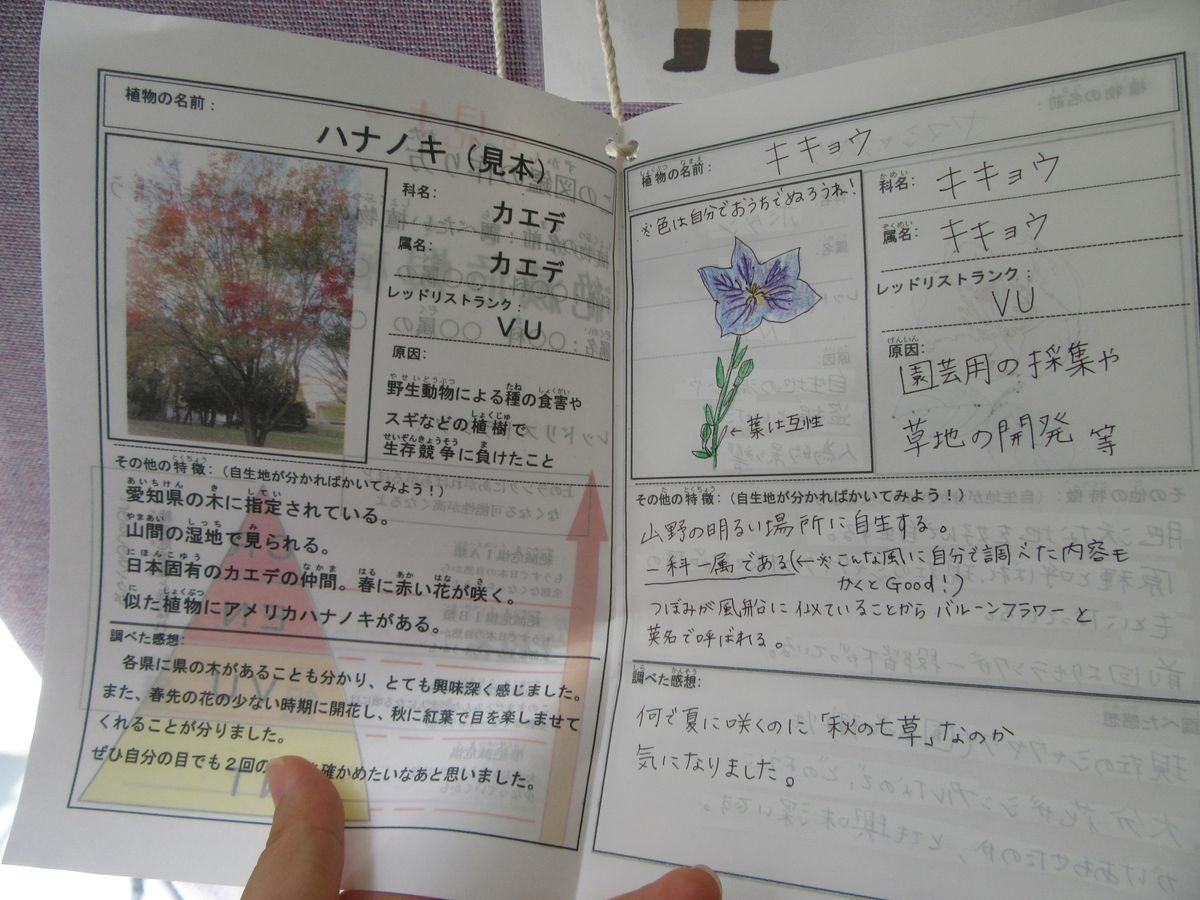 植物の名前：
ハナノキ（見本）
科名：
カエデ
属名：
カエデ
レッドリストランク：
VU
原因：
野生動物による種の食害や
スギなどの植樹で
生存競争に負けたこと
その他の特徴：（自生地が分かればかいてみよう！）
愛知県の木に指定されている。
山間の湿地で見られる。
日本固有のカエデの仲間。春に赤い花が咲く。
似た植物にアメリカハナノキがある。
調べた感想：
各県に県の木があることも分かり、とても興味深く感じました。
また、春先の花の少ない時期に開花し、秋に紅葉で目を楽しませて
くれることが分りました。
ぜひ自分の目でも２回の 確かめたいなあと思いました。
植物の名前：
キキョウ
※色は自分でおうちでぬろうね！
←葉は互性
科名：
キキョウ
属名：
キキョウ
レッドリストランク：
VU
原因：
園芸用の採集や
草地の開発 等
その他の特徴：（自生地が分かればかいてみよう！）
山野の明るい場所に自生する。
一科一属である(←※こんな風に自分で調べた内容も
かくとGood！)
つぼみが風船に似ていることからバルーンフラワーと
英名で呼ばれる。
調べた感想：
何で夏に咲くのに「秋の七草」なのか
気になりました。